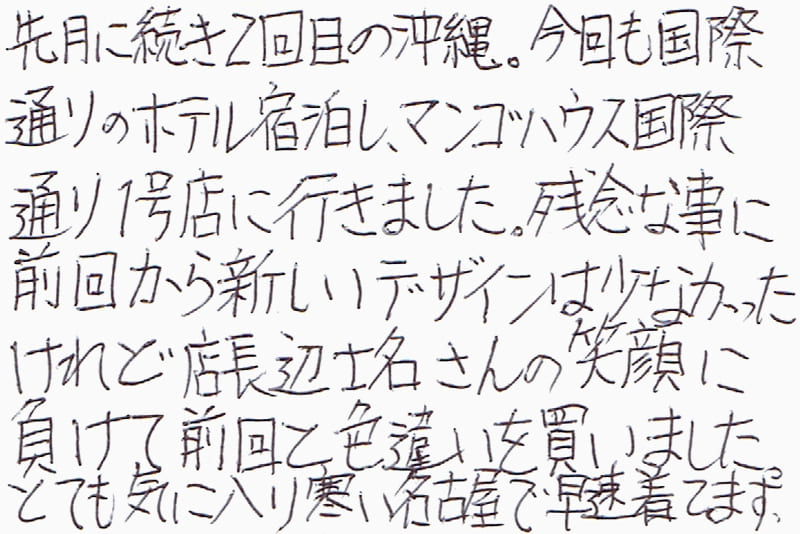 先月に続き2回目の沖縄。今回も国際
通りのホテル宿泊し、マンゴハウス国際
通り1号店に行きました。残念な事に
前回から新しいデザインは少なかった
けれど店長辺土名さんの笑顔に
負けて前回と色違いを買いました。
とても気に入り寒い名古屋で早速着てます。